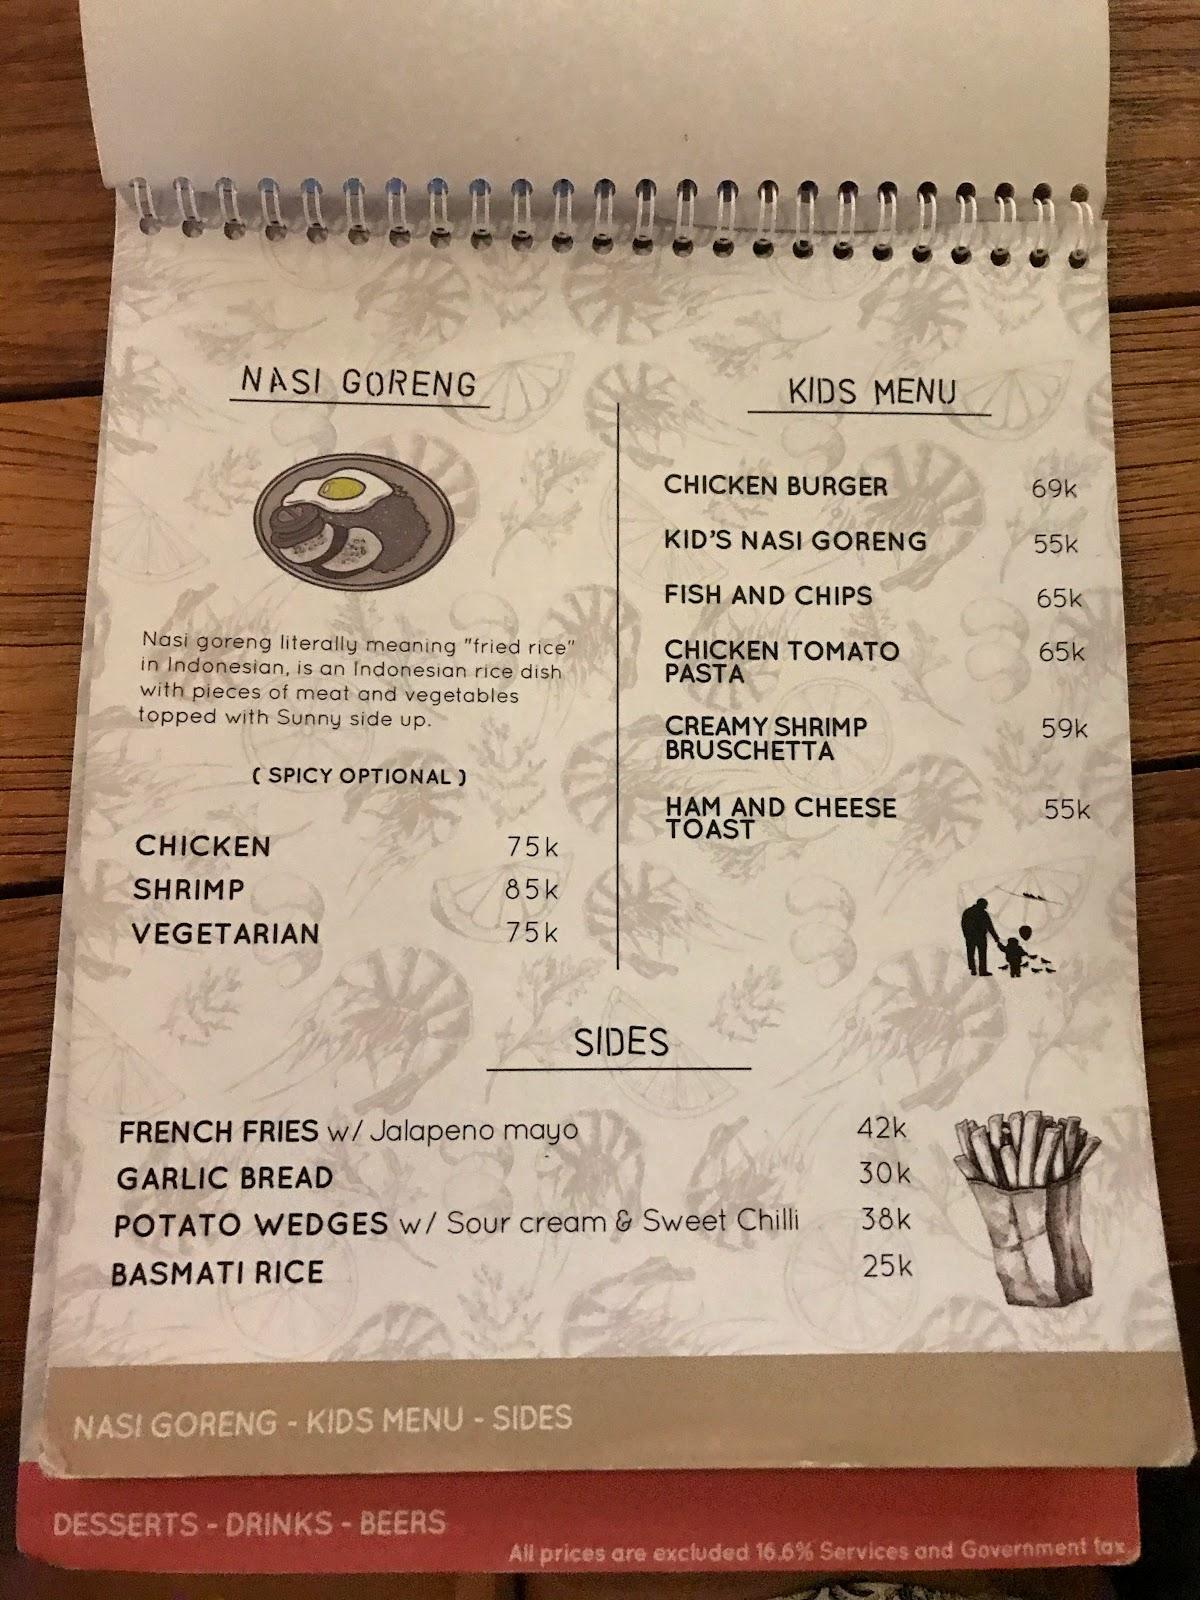 NASI GORENG
Nasi goreng literally meaning "fried rice"
in Indonesian, is an Indonesian rice dish
with pieces of meat and vegetables
topped with Sunny side up.
( SPICY OPTIONAL )
CHICKEN 75k
SHRIMP 85k
VEGETARIAN 75k
KIDS MENU
CHICKEN BURGER 69k
KID'S NASI GORENG 55k
FISH AND CHIPS 65k
CHICKEN TOMATO 65k
PASTA
CREAMY SHRIMP 59k
BRUSCHETTA
HAM AND CHEESE 55k
TOAST
SIDES
FRENCH FRIES w/ Jalapeno mayo 42k
GARLIC BREAD 30k
POTATO WEDGES w/ Sour cream & Sweet Chilli 38k
BASMATI RICE 25k
NASI GORENG - KIDS MENU - SIDES
DESSERTS - DRINKS - BEERS
All prices are excluded 16.6% Services and Government tax